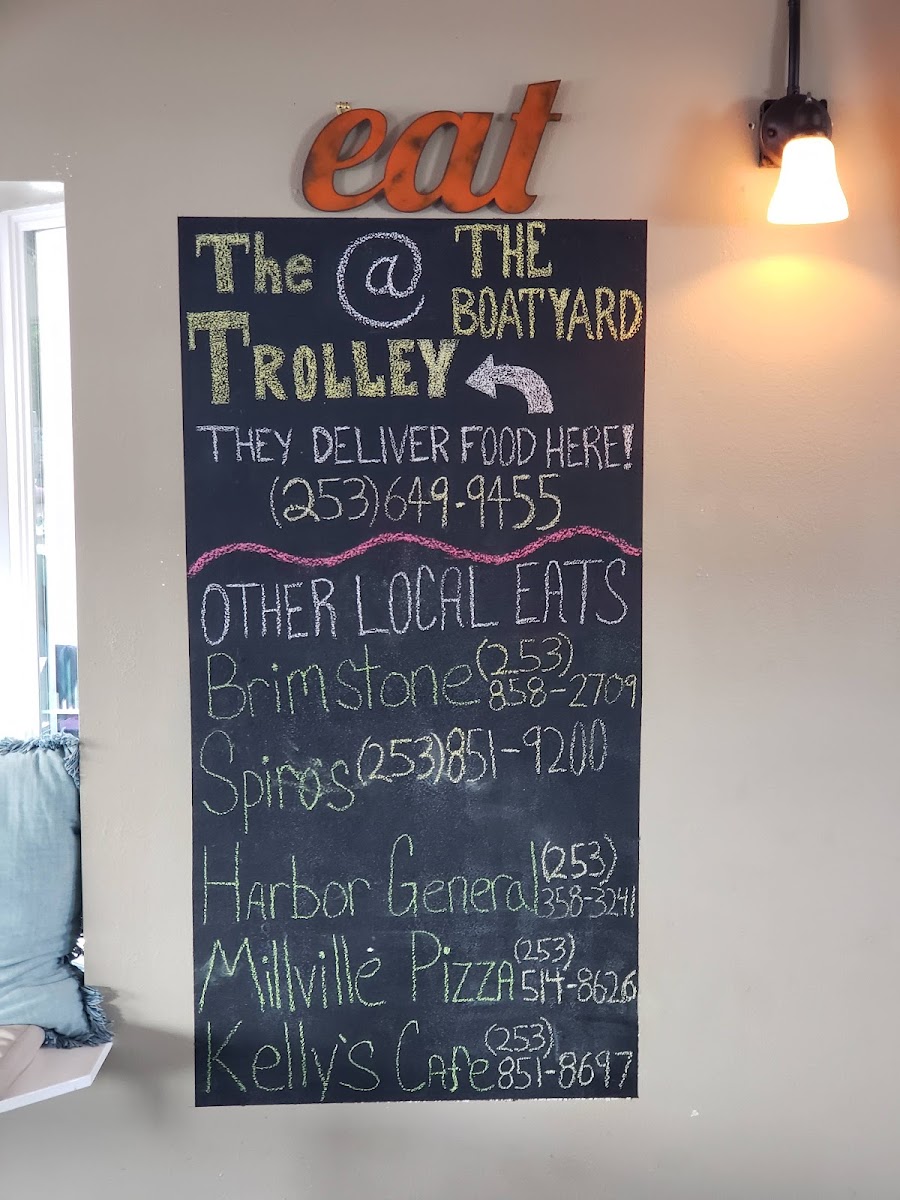 eat
The @ THE
BOATYARD
TROLLEY
THEY DELIVER FOOD HERE!
(253)649-9455
OTHER LOCAL EATS
Brimstone (253)
858-2709
Spiros (253)851-9200
Harbor General (253)
358-3241
Millville Pizza (253)
514-8626
Kelly's Cafe (253)
851-8697